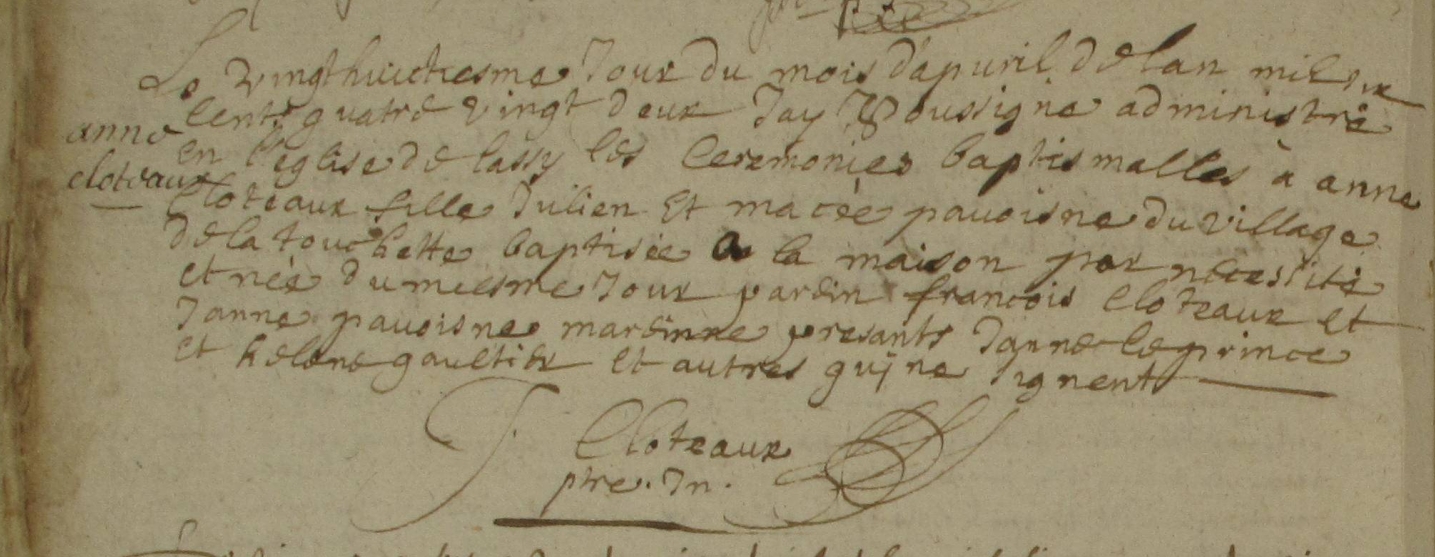 Le vingthuictiesme Jour du mois d'apuril de lan mil six
cents quatre vingt deux Jay Soussigné administré
anne
en l'eglise de lassy les Ceremonies baptismalles à anne
cloteaux
Cloteaux fille Julien Et macée pavoisne du village
de la touchette baptisée a la maison par necessité
et née du mesme Jour parein francois Cloteaux et
Janne pavoisne mareinne presants Janne le prince
et helene gaultier et autres qui ne Signent
J Cloteaux
ptre.